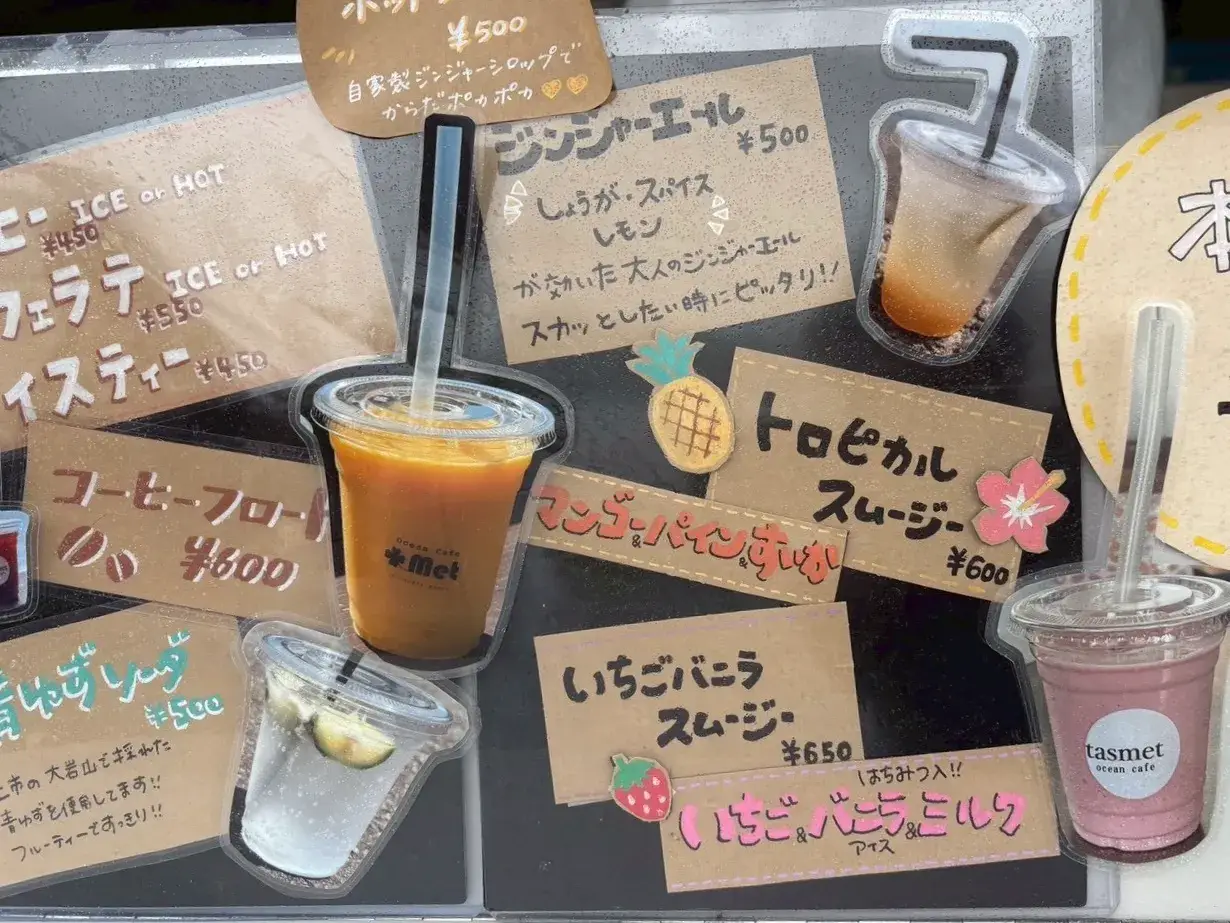 ¥500
自家製ジンジャーシロップで
からだポカポカ
ICE or HOT
¥450
フェラテ ICE or HOT
¥550
イスティー ¥450
コーヒーフロート
¥600
青ゆずソーダ
¥500
市の大岩山で採れた
青ゆずを使用してます!!
フルーティーですっきり!!
Ocean Cafe
met
ジンジャーエール
¥500
しょうが・スパイス
レモン
が効いた大人のジンジャーエール
スカッとしたい時にピッタリ!!
トロピカル
スムージー
¥600
マンゴー&パイン&すいか
いちごバニラ
スムージー
¥650
はちみつ入!!
いちご&バニラ&ミルク
アイス
tasmet
ocean cafe